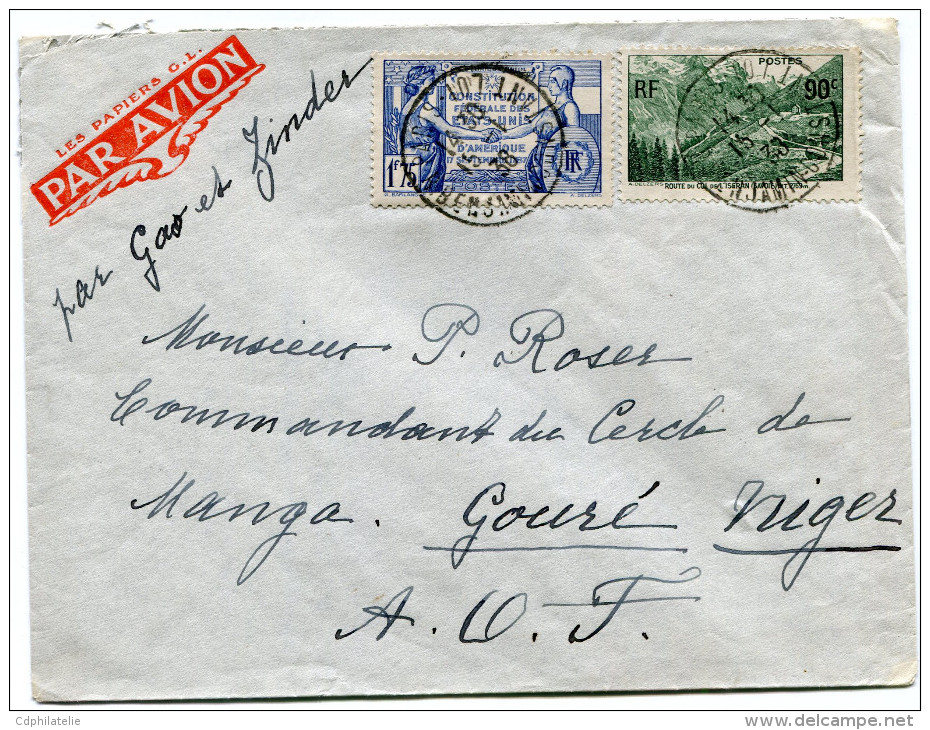 LES PAPIERS C.L.
PAR AVION
par Gao et Zinder
CONSTITUTION
FÉDÉRALE DES
ÉTATS-UNIS
D'AMÉRIQUE
17 SEPTEMBRE 1787
1f75
POSTES
RF
A. DELZERS
POSTES
RF 90c
A. DELZERS ROUTE DU COL DE L'ISERAN (SAVOIE) ALT. 2769m
Monsieur P. Roser
Commandant du Cercle de
Manga. Gouré Niger
A. O. F.
Cdphilatelie
www.delcampe.net